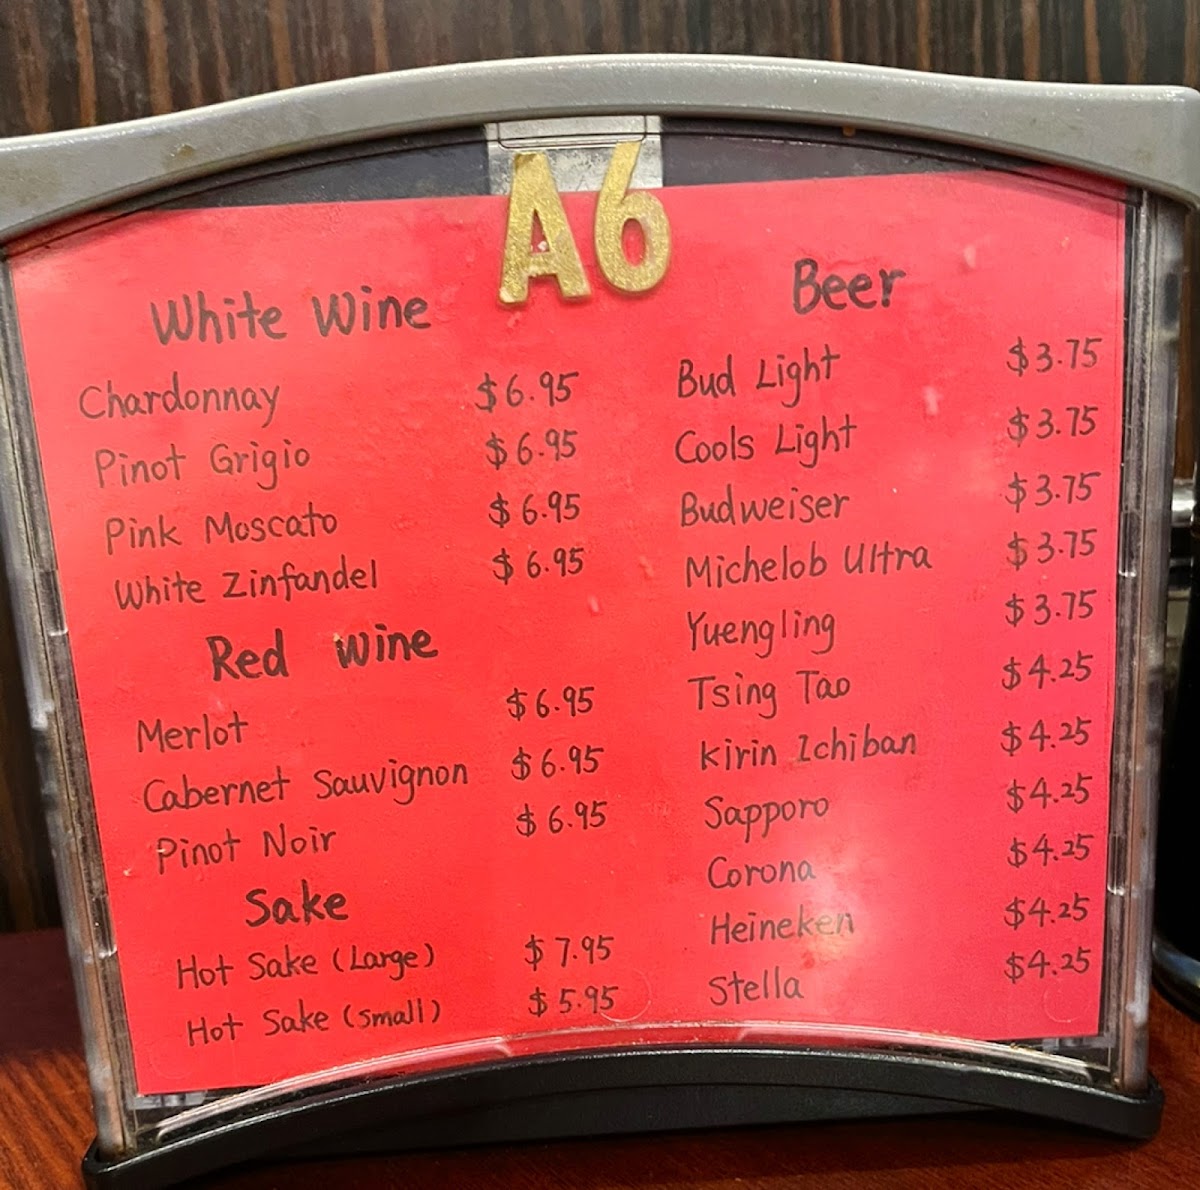 A6
White Wine
Chardonnay $6.95
Pinot Grigio $6.95
Pink Moscato $6.95
White Zinfandel $6.95
Red Wine
Merlot $6.95
Cabernet Sauvignon $6.95
Pinot Noir $6.95
Sake
Hot Sake (Large) $7.95
Hot Sake (Small) $5.95
Beer
Bud Light $3.75
Cools Light $3.75
Budweiser $3.75
Michelob Ultra $3.75
Yuengling $3.75
Tsing Tao $4.25
Kirin Ichiban $4.25
Sapporo $4.25
Corona $4.25
Heineken $4.25
Stella $4.25